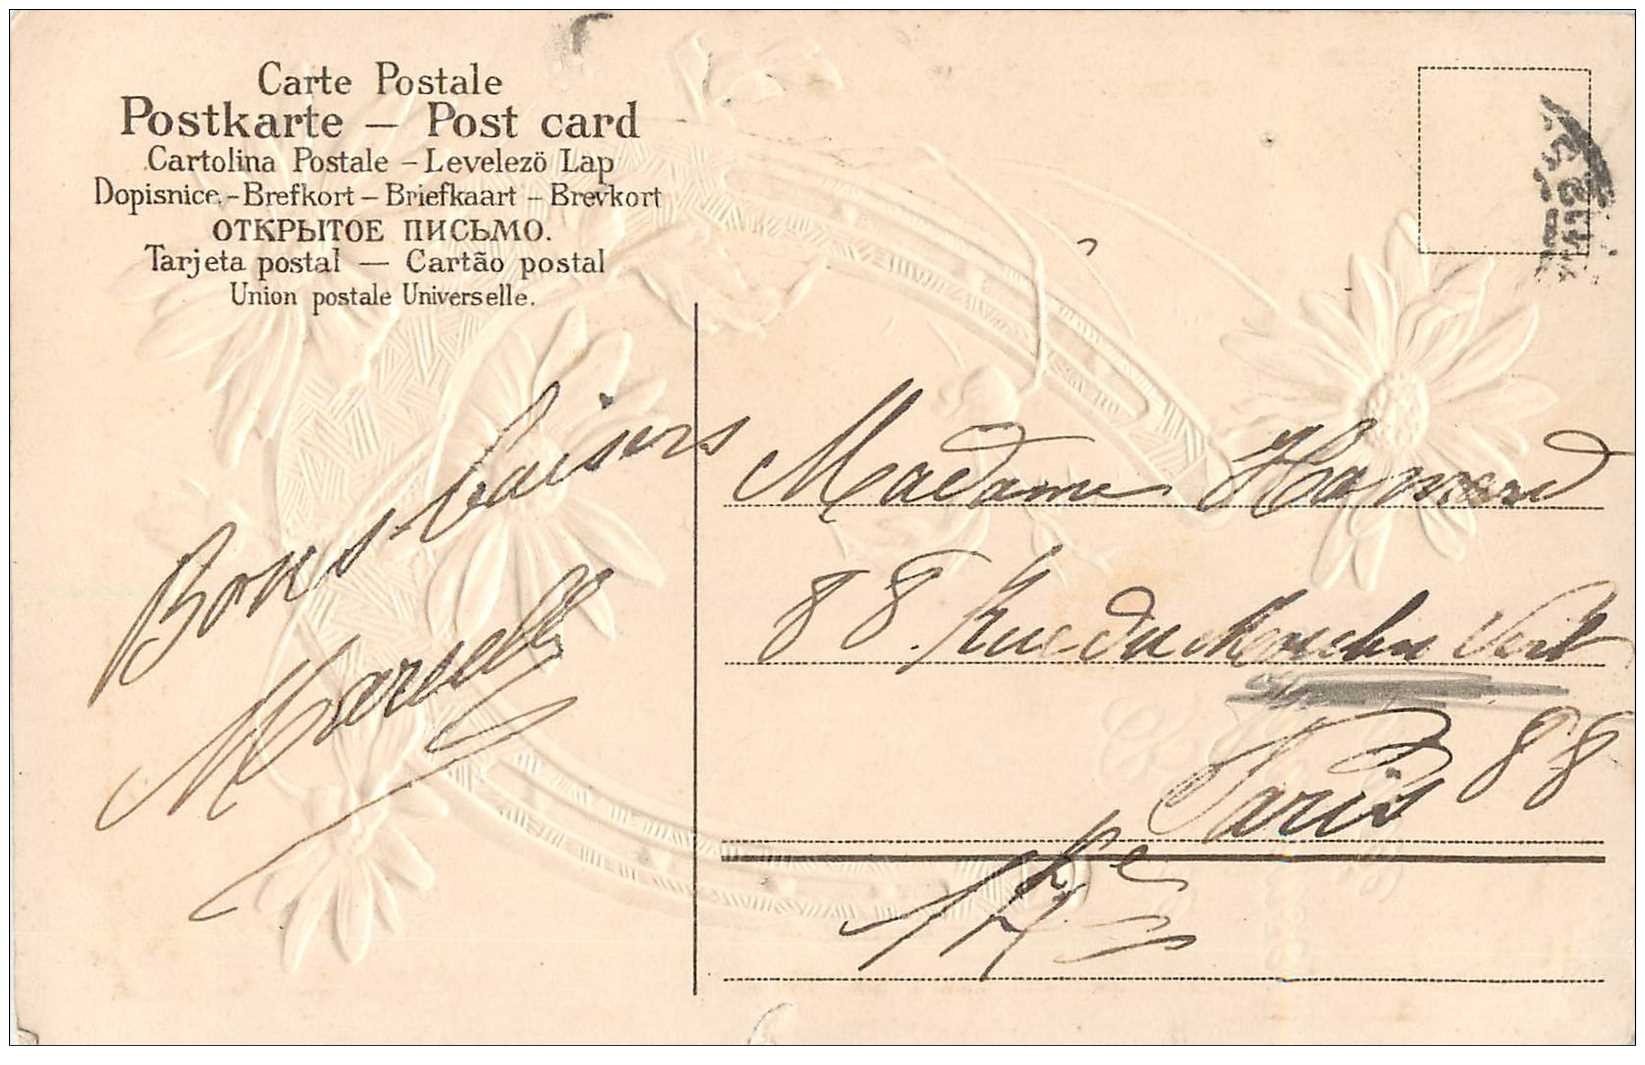 Carte Postale
Postkarte – Post card
Cartolina Postale – Levelezö Lap
Dopisnice.- Brefkort – Briefkaart – Brevkort
ОТКРЫТОЕ ПИСЬМО.
Tarjeta postal — Cartão postal
Union postale Universelle.
Bons baisers
Marcelle
Madame Hamard
88 Rue du Chemin Vert
Paris 88